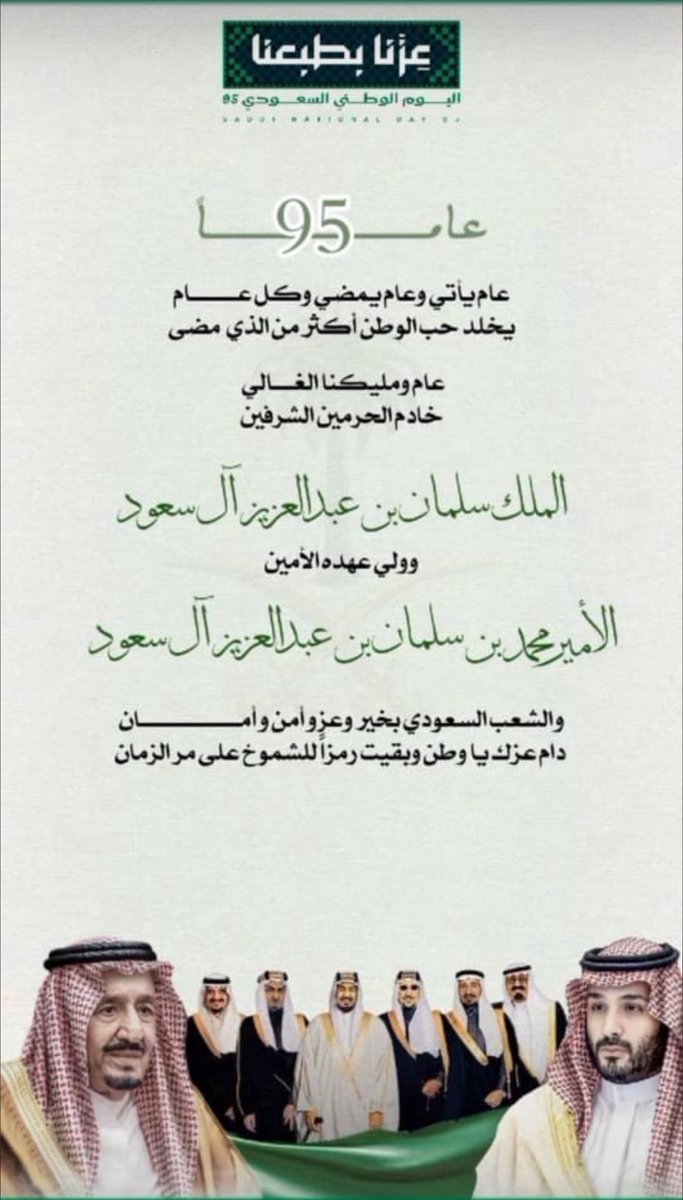 عزّنا بطبعنا
اليوم الوطني السعودي 95
SAUDI NATIONAL DAY 95
95 عاماً
عام يأتي وعام يمضي وكل عام
يخلد حب الوطن أكثر من الذي مضى
عام ومليكنا الغالي
خادم الحرمين الشرفين
الملك سلمان بن عبدالعزيز آل سعود
وولي عهده الأمين
الأمير محمد بن سلمان بن عبدالعزيز آل سعود
والشعب السعودي بخير وعز وأمن وأمان
دام عزك يا وطن وبقيت رمزاً للشموخ على مر الزمان